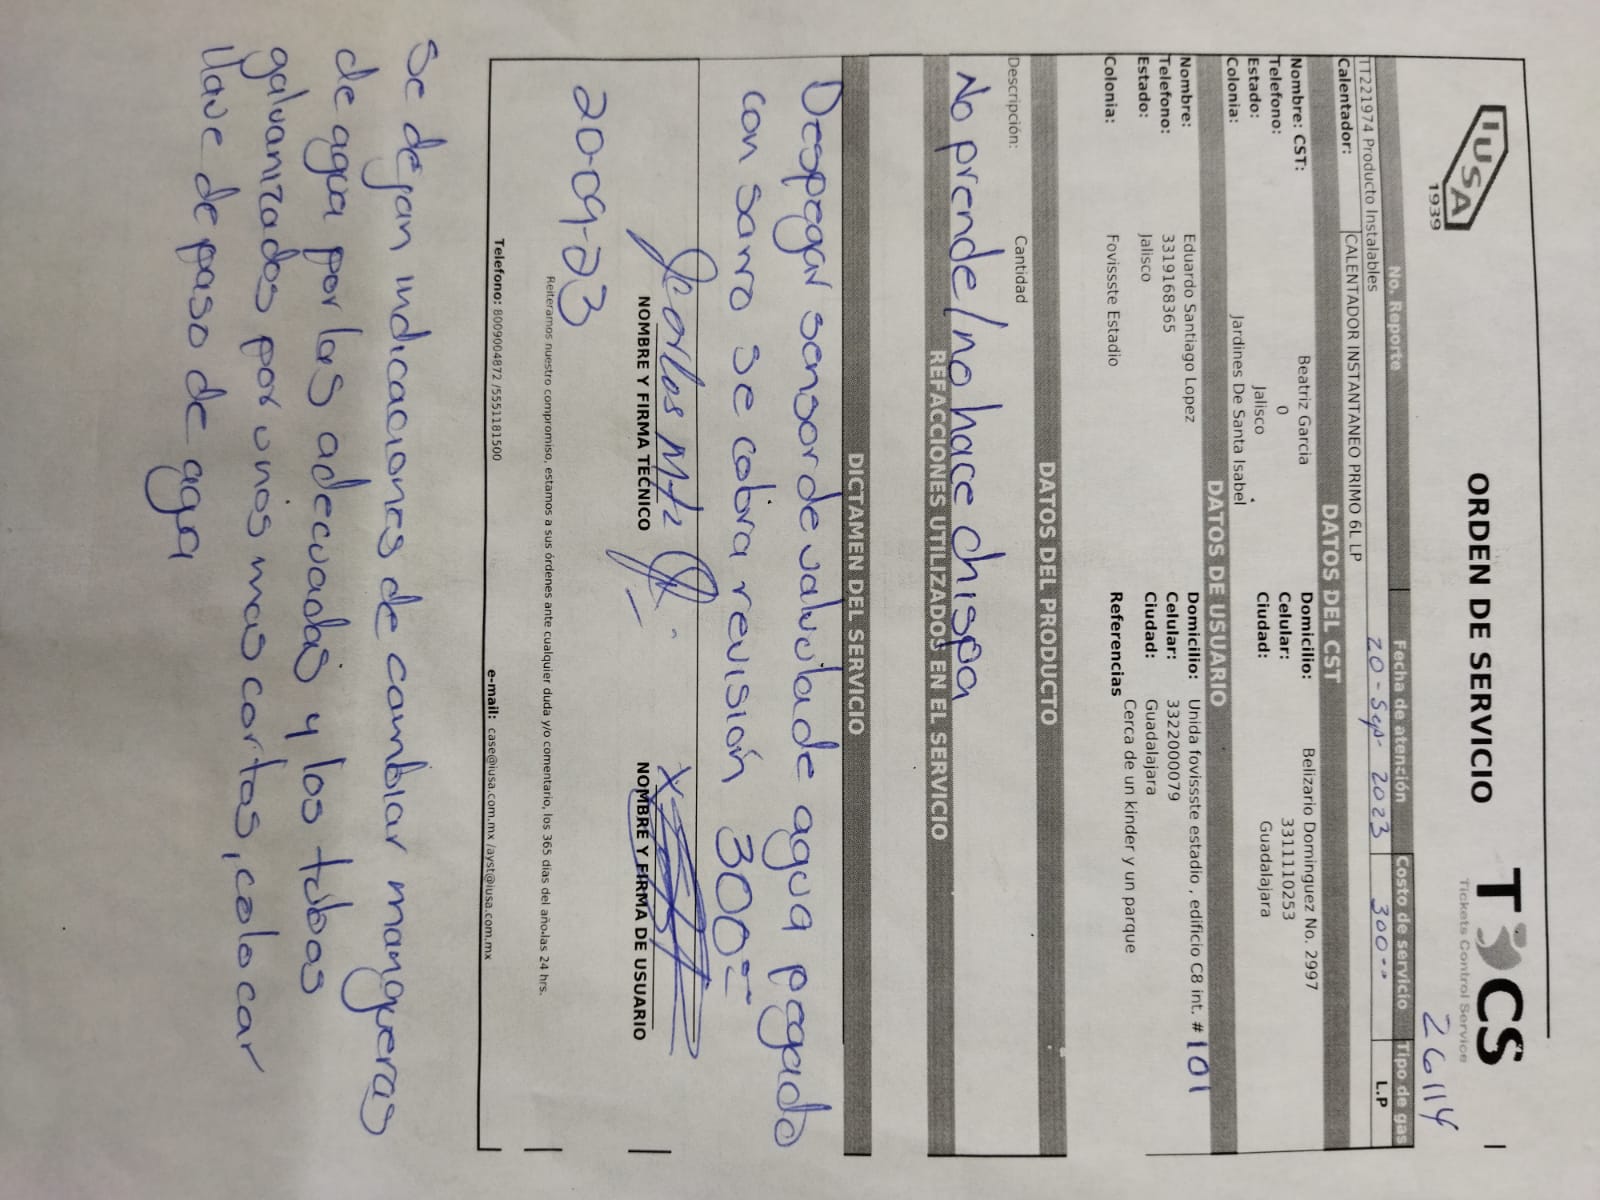 IUSA
1939
ORDEN DE SERVICIO
TCS
Tickets Control Service
26114
No. Reporte Fecha de atención Costo de servicio Tipo de gas
TT221974 Producto Instalables 20-Sep- 2023 300.00 L.P
Calentador: CALENTADOR INSTANTANEO PRIMO 6L LP
DATOS DEL CST
Nombre: CST: Beatriz Garcia Domicilio: Belizario Dominguez No. 2997
Telefono: 0 Celular: 3311110253
Estado: Jalisco Ciudad: Guadalajara
Colonia: Jardines De Santa Isabel
DATOS DE USUARIO
Nombre: Eduardo Santiago Lopez Domicilio: Unida fovissste estadio , edificio C8 int. # 101
Telefono: 3319168365 Celular: 3322000079
Estado: Jalisco Ciudad: Guadalajara
Colonia: Fovissste Estadio Referencias Cerca de un kinder y un parque
DATOS DEL PRODUCTO
Descripción: Cantidad
No prende/no hace chispa
REFACCIONES UTILIZADOS EN EL SERVICIO
DICTAMEN DEL SERVICIO
Despegar sensor de valvula de agua pegado
con sarro se cobra revisión 300=
Carlos Mtz
NOMBRE Y FIRMA TECNICO NOMBRE Y FIRMA DE USUARIO
20-09-23
Reiteramos nuestro compromiso, estamos a sus órdenes ante cualquier duda y/o comentario, los 365 días del año-las 24 hrs.
Telefono: 8009004872 /5551181500 e-mail: case@iusa.com.mx /ayst@iusa.com.mx
Se dejan indicaciones de cambiar mangueras
de agua por las adecuadas y los tubos
galvanizados por unos mas cortos, colocar
llave de paso de agua